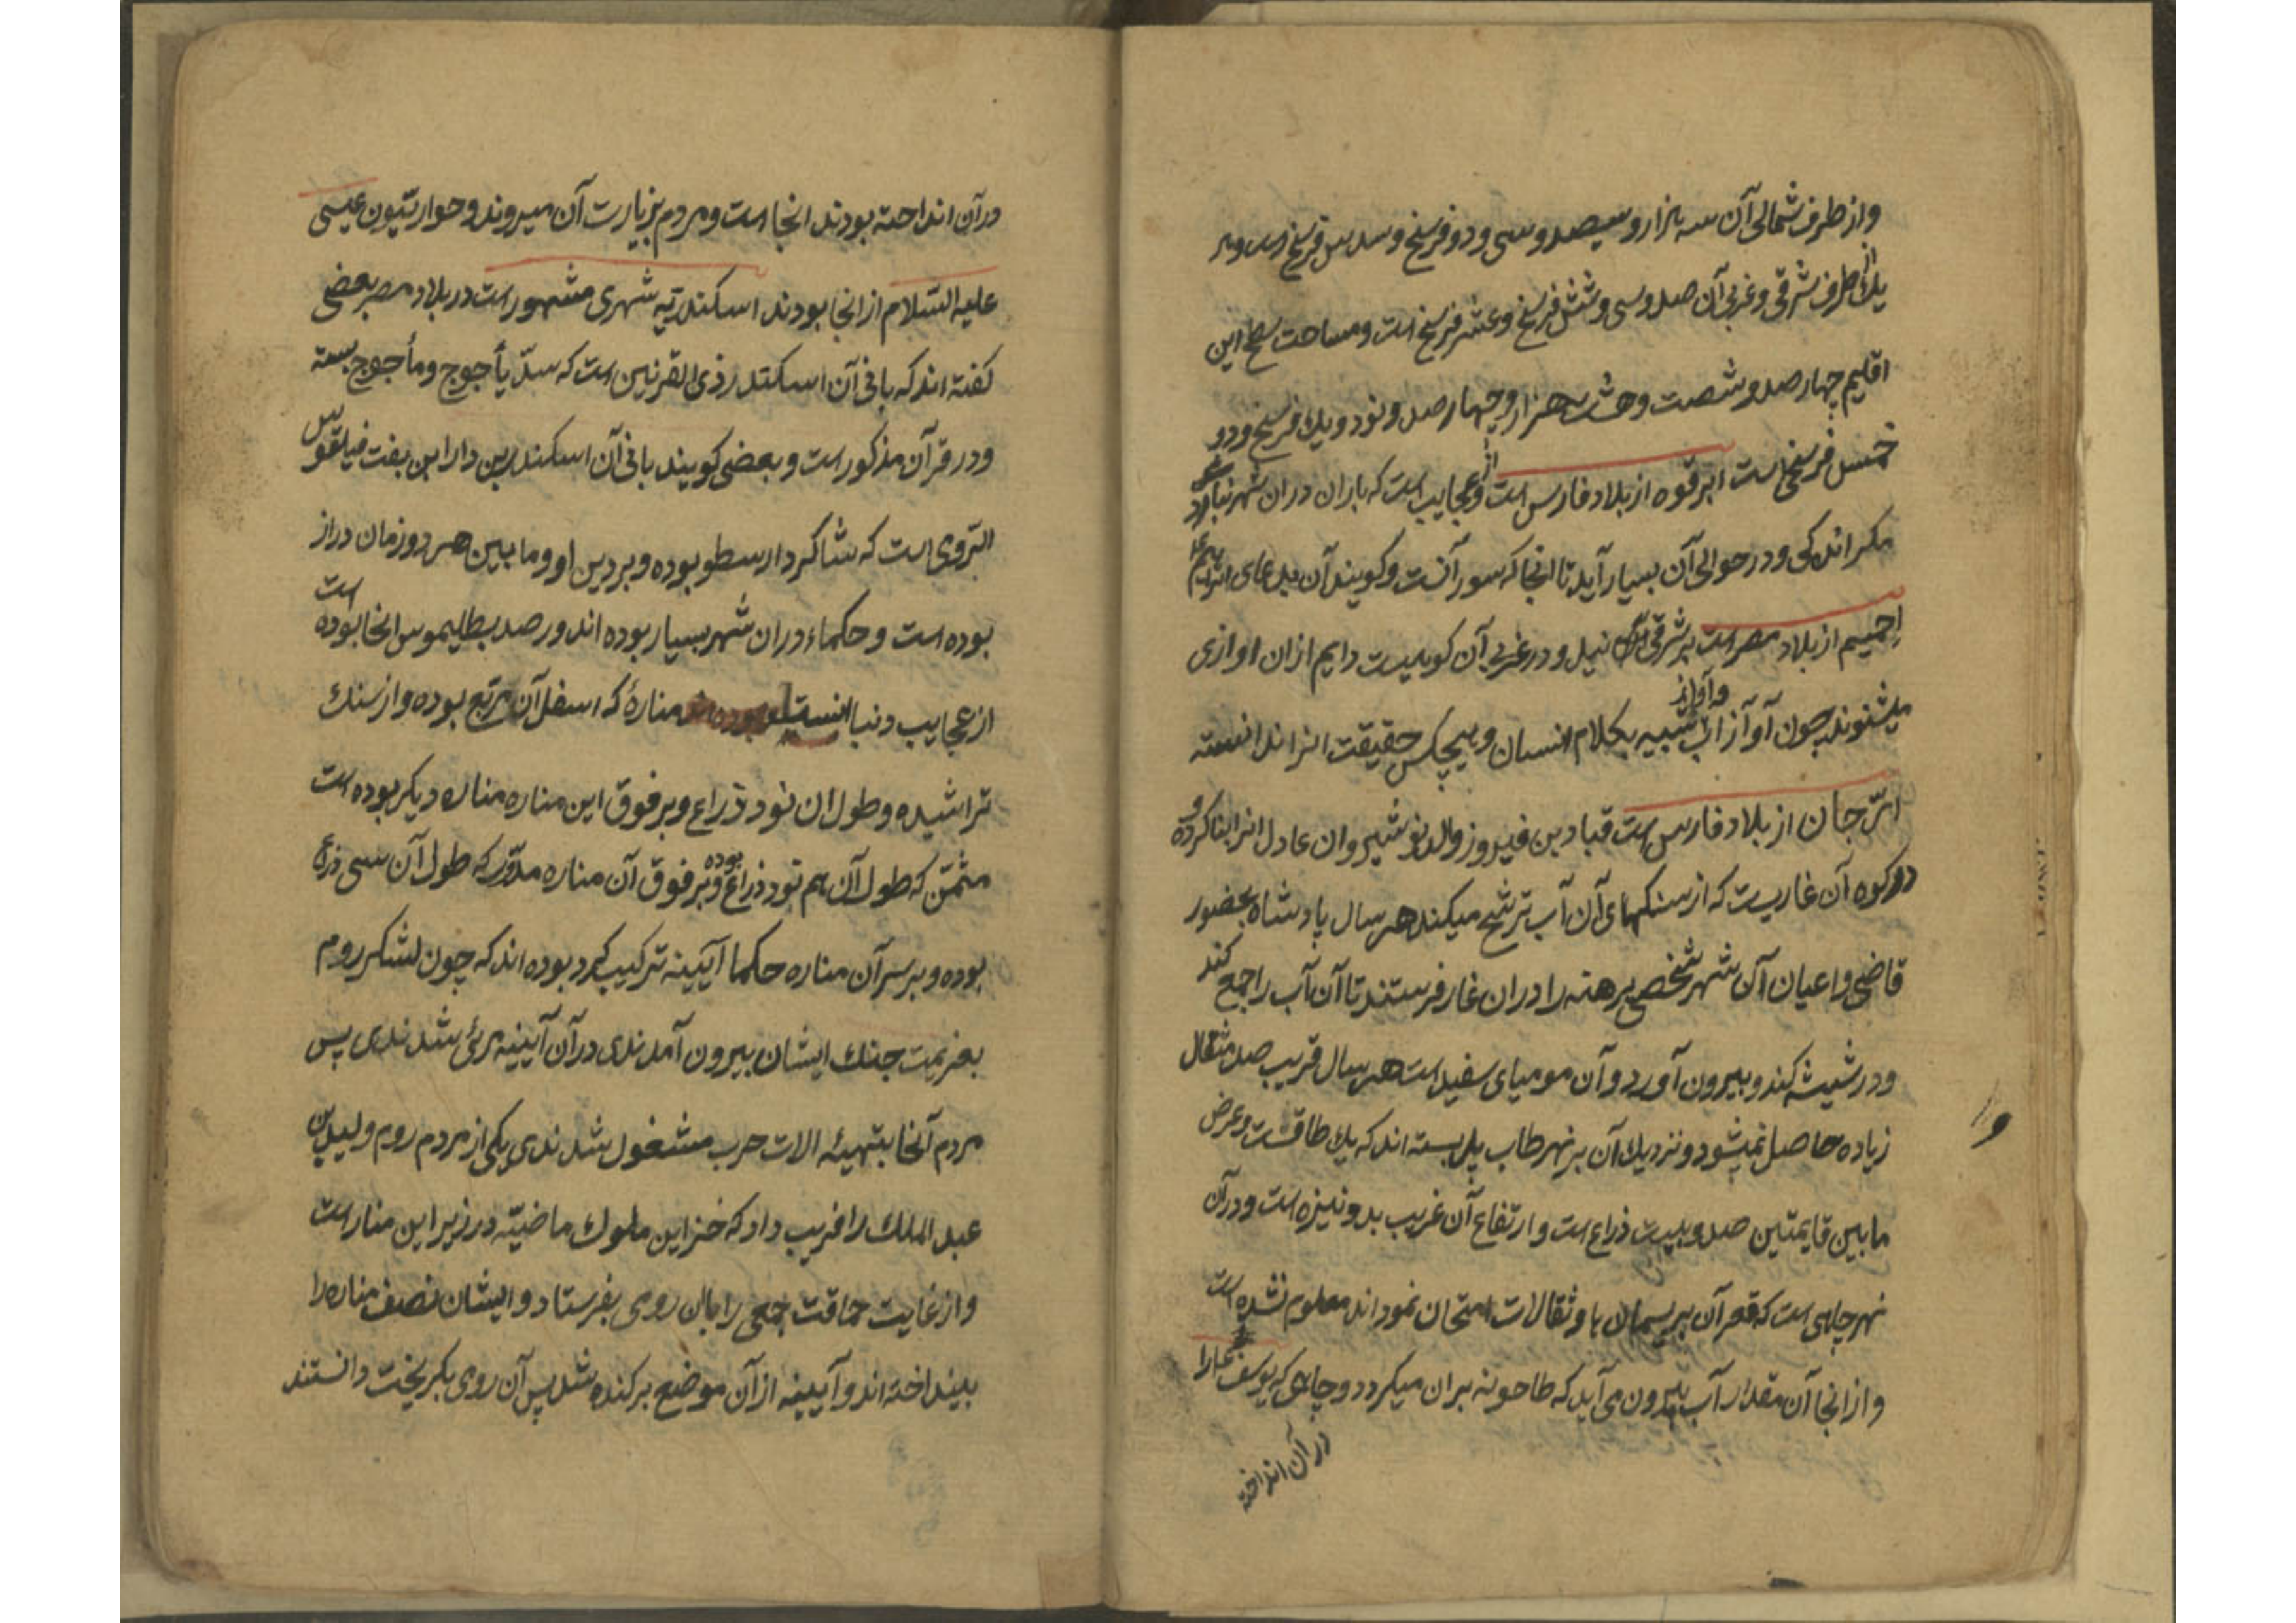 واز طرف شمالی آن سه هزار و سیصد و سی و دو فرسخ و سدس فرسخ است و هر
یک از طرف شرقی و غربی آن صد و سی و شش فرسخ و عشر فرسخ است و مساحت سطح این
اقلیم چهار صد و شصت و هشت هزار و چهار صد و نود و یک فرسخ و دو
خمس فرسخی است ابرقوه از بلاد فارس است و از عجایب است که باران در ان شهر نبارد
مکر اندکی و در حوالی آن بسیار آید تا انجا که سور آنست و کویند آن بدعای ابراهیم
اخمیم از بلاد مصر است بر شرقی نیل و در غربی آن کوهیست دایم ازان اوازی
میشنوند چون آواز آب و آوازی شبیه بکلام انسان و هیچکس حقیقت انرا ندانسته
ارّجان از بلاد فارس است قباد بن فیروز والد نوشیروان عادل انرا بنا کرده و
در کوه آن غاریست که از سنکهای آن آب ترشح میکند هر سال پادشاه بحضور
قاضی و اعیان آن شهر شخصی برهنه را دران غار فرستند تا آن آب را جمع کند
و در شیشه کند و بیرون آورد و آن مومیای سفید است هر سال قریب صد مثقال
زیاده حاصل نمیشود و نزدیک آن بر نهر طاب پل بسته اند که یک طاقست و عرض
ما بین قایمتین صد و بیست ذراع است و ارتفاع آن غریب بدو نیزه است و در آن
نهر چاهی است که قعر آن بریسمان با و ثقالات امتحان نمود اند معلوم نشده است
و از انجا آن مقدار آب بیرون می آید که طاحونه بران میکردد و چاهی که یوسف را
در آن انداخته
در آن انداخته بودند انجا است و مردم بزیارت آن میروند و حواریّیون عیسی
علیه السّلام از انجا بودند اسکندریّه شهری مشهور است در بلاد مصر بعضی
کفته اند که بانی آن اسکندر ذی القرنین است که سدّ یأجوج و مأجوج بسته
و در قرآن مذکور است و بعضی کویند بانی آن اسکندر بن دارا بن بفت فیلقوس
الرّومی است که شاکرد ارسطو بوده و بر دین او و ما بین هر دو زمان دراز
بوده است و حکماء دران شهر بسیار بوده اند و رصد بطلیموس انجا بوده است
از عجایب دنیا منارهٔ که اسفل آن مربّع بوده و از سنک
تراشیده و طول ان نود ذراع و بر فوق این مناره مناره دیکر بوده است
مثمّن که طول آن هم نود ذراع بوده و بر فوق آن مناره مدوّر که طول آن سی ذرع
بوده و بر سر آن مناره حکما آیینه ترکیب کرد بوده اند که چون لشکر روم
بعزیمت جنک ایشان بیرون آمدندی در آن آیینه مرئی شدندی پس
مردم آنجا بتهیئه الات حرب مشغول شدندی یکی از مردم روم ولید بن
عبد الملک را فریب داد که خزاین ملوک ماضیّه در زیر این منار است
و از غایت حماقت جمعی را بان رومی بفرستاد و ایشان نصف مناره را
بینداخته اند و آیینه از آن موضع برکنده شد پس آن رومی بکریخت دانستند